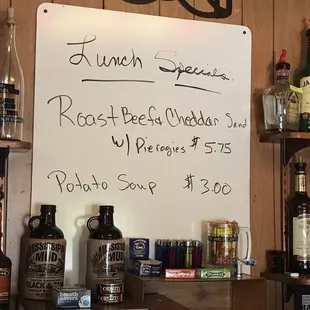 Lunch Specials:
Roast Beef & Cheddar Sand
w/ Pierogies $5.75
Potato Soup $3.00
MISSISSIPPI
MUD
MISSISSIPPI
MUD